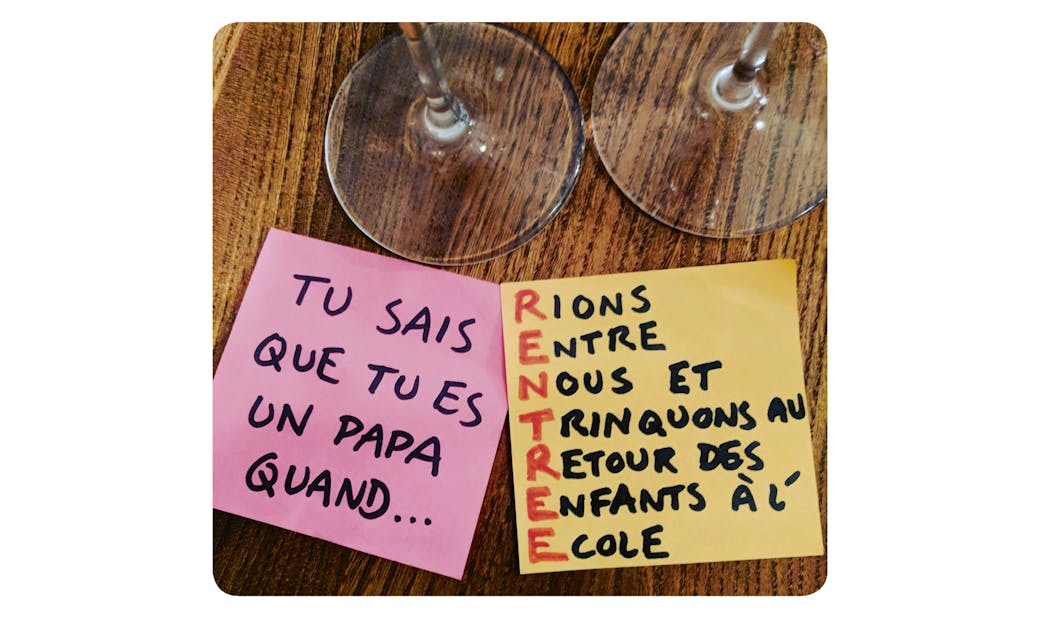 TU SAIS
QUE TU ES
UN PAPA
QUAND...
RIONS
ENTRE
NOUS ET
TRINQUONS AU
RETOUR DES
ENFANTS À L'
ECOLE